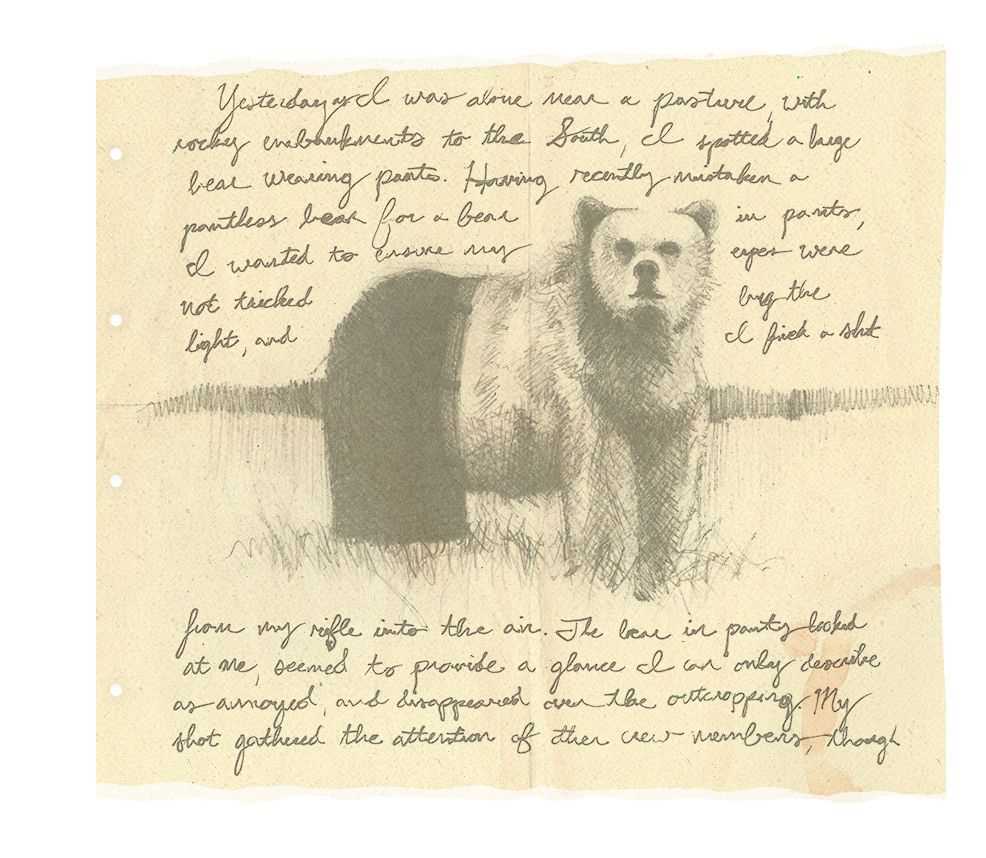 Yesterday as I was alone near a pasture, with
rocky embankments to the South, I spotted a large
bear wearing pants. Having recently mistaken a
pantless bear for a bear in pants,
I wanted to ensure my eyes were
not tricked by the
light, and I fired a shot
from my rifle into the air. The bear in pants looked
at me, seemed to provide a glance I can only describe
as annoyed, and disappeared over the outcropping. My
shot gathered the attention of other crew members, though